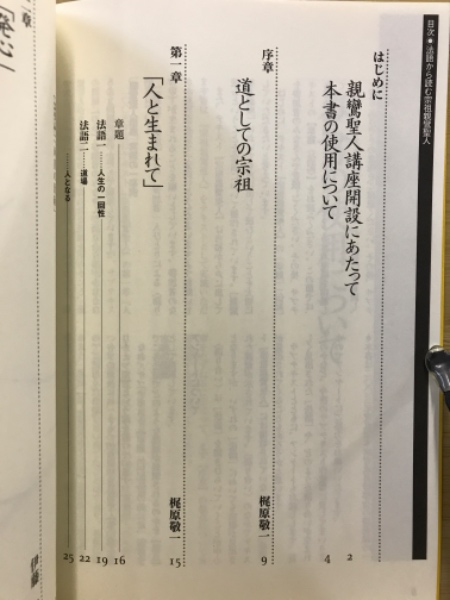 目次●法語から読む宗祖親鸞聖人
はじめに
親鸞聖人講座開設にあたって 2
本書の使用について 4
序章
道としての宗祖 梶原敬一 9
第一章
「人と生まれて」 梶原敬一 15
章題 16
法語一……人生の一回性 19
法語二……道場 22
……人となる 25
章
「発心」